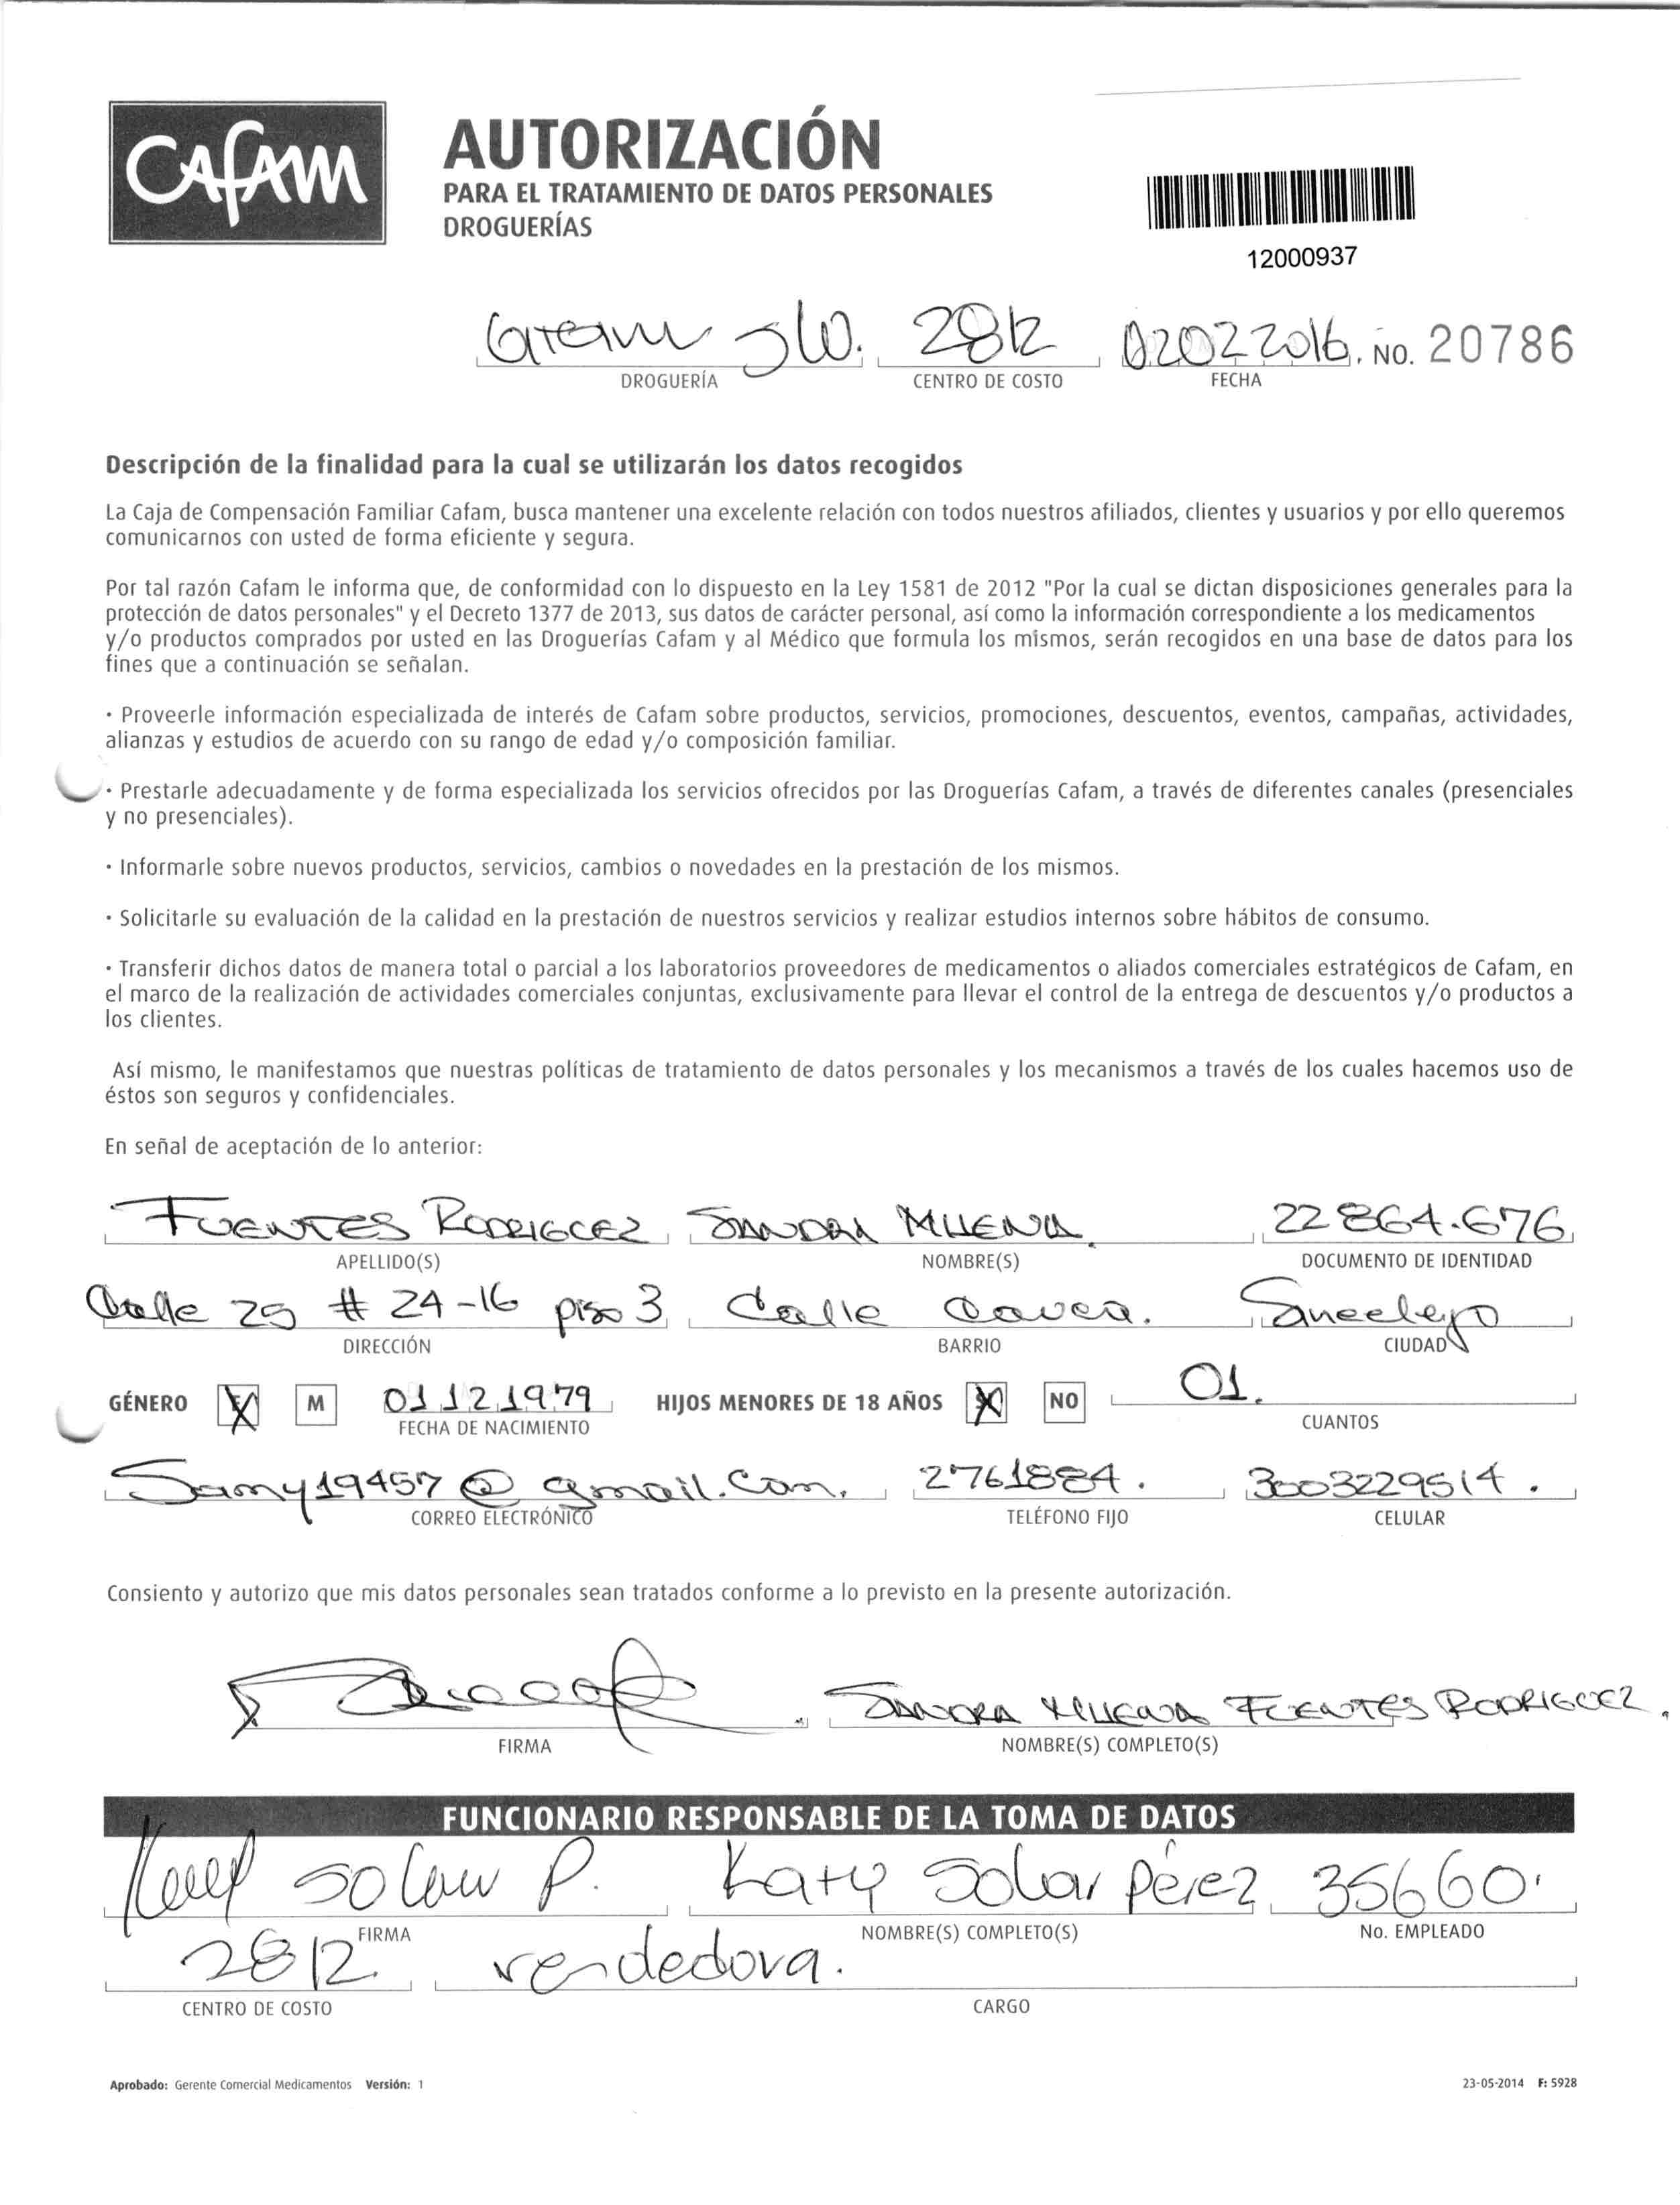 Cafam
AUTORIZACIÓN
PARA EL TRATAMIENTO DE DATOS PERSONALES
DROGUERÍAS
12000937
2812 02022016. NO. 20786
DROGUERÍA CENTRO DE COSTO FECHA
Descripción de la finalidad para la cual se utilizarán los datos recogidos
La Caja de Compensación Familiar Cafam, busca mantener una excelente relación con todos nuestros afiliados, clientes y usuarios y por ello queremos
comunicarnos con usted de forma eficiente y segura.
Por tal razón Cafam le informa que, de conformidad con lo dispuesto en la Ley 1581 de 2012 "Por la cual se dictan disposiciones generales para la
protección de datos personales" y el Decreto 1377 de 2013, sus datos de carácter personal, así como la información correspondiente a los medicamentos
y/o productos comprados por usted en las Droguerías Cafam y al Médico que formula los mismos, serán recogidos en una base de datos para los
fines que a continuación se señalan.
· Proveerle información especializada de interés de Cafam sobre productos, servicios, promociones, descuentos, eventos, campañas, actividades,
alianzas y estudios de acuerdo con su rango de edad y/o composición familiar.
· Prestarle adecuadamente y de forma especializada los servicios ofrecidos por las Droguerías Cafam, a través de diferentes canales (presenciales
y no presenciales).
· Informarle sobre nuevos productos, servicios, cambios o novedades en la prestación de los mismos.
· Solicitarle su evaluación de la calidad en la prestación de nuestros servicios y realizar estudios internos sobre hábitos de consumo.
· Transferir dichos datos de manera total o parcial a los laboratorios proveedores de medicamentos o aliados comerciales estratégicos de Cafam, en
el marco de la realización de actividades comerciales conjuntas, exclusivamente para llevar el control de la entrega de descuentos y/o productos a
los clientes.
Así mismo, le manifestamos que nuestras políticas de tratamiento de datos personales y los mecanismos a través de los cuales hacemos uso de
éstos son seguros y confidenciales.
En señal de aceptación de lo anterior:
FUENTES RODRIGUEZ SANDRA MILENA 22864.676
APELLIDO(S) NOMBRE(S) DOCUMENTO DE IDENTIDAD
Calle 25 # 24-16 piso 3 Calle Cauca. Sincelejo
DIRECCIÓN BARRIO CIUDAD
GÉNERO F M 01121979 HIJOS MENORES DE 18 AÑOS SI NO 01.
FECHA DE NACIMIENTO CUANTOS
Samy19457@gmail.com. 2761884. 3003229514.
CORREO ELECTRÓNICO TELÉFONO FIJO CELULAR
Consiento y autorizo que mis datos personales sean tratados conforme a lo previsto en la presente autorización.
SANDRA MILENA FUENTES RODRIGUEZ.
FIRMA NOMBRE(S) COMPLETO(S)
FUNCIONARIO RESPONSABLE DE LA TOMA DE DATOS
Katy Solar P. Katy Solar Pérez 35660.
FIRMA NOMBRE(S) COMPLETO(S) No. EMPLEADO
2812 vendedora.
CENTRO DE COSTO CARGO
Aprobado: Gerente Comercial Medicamentos Versión: 1 23-05-2014 F: 5928